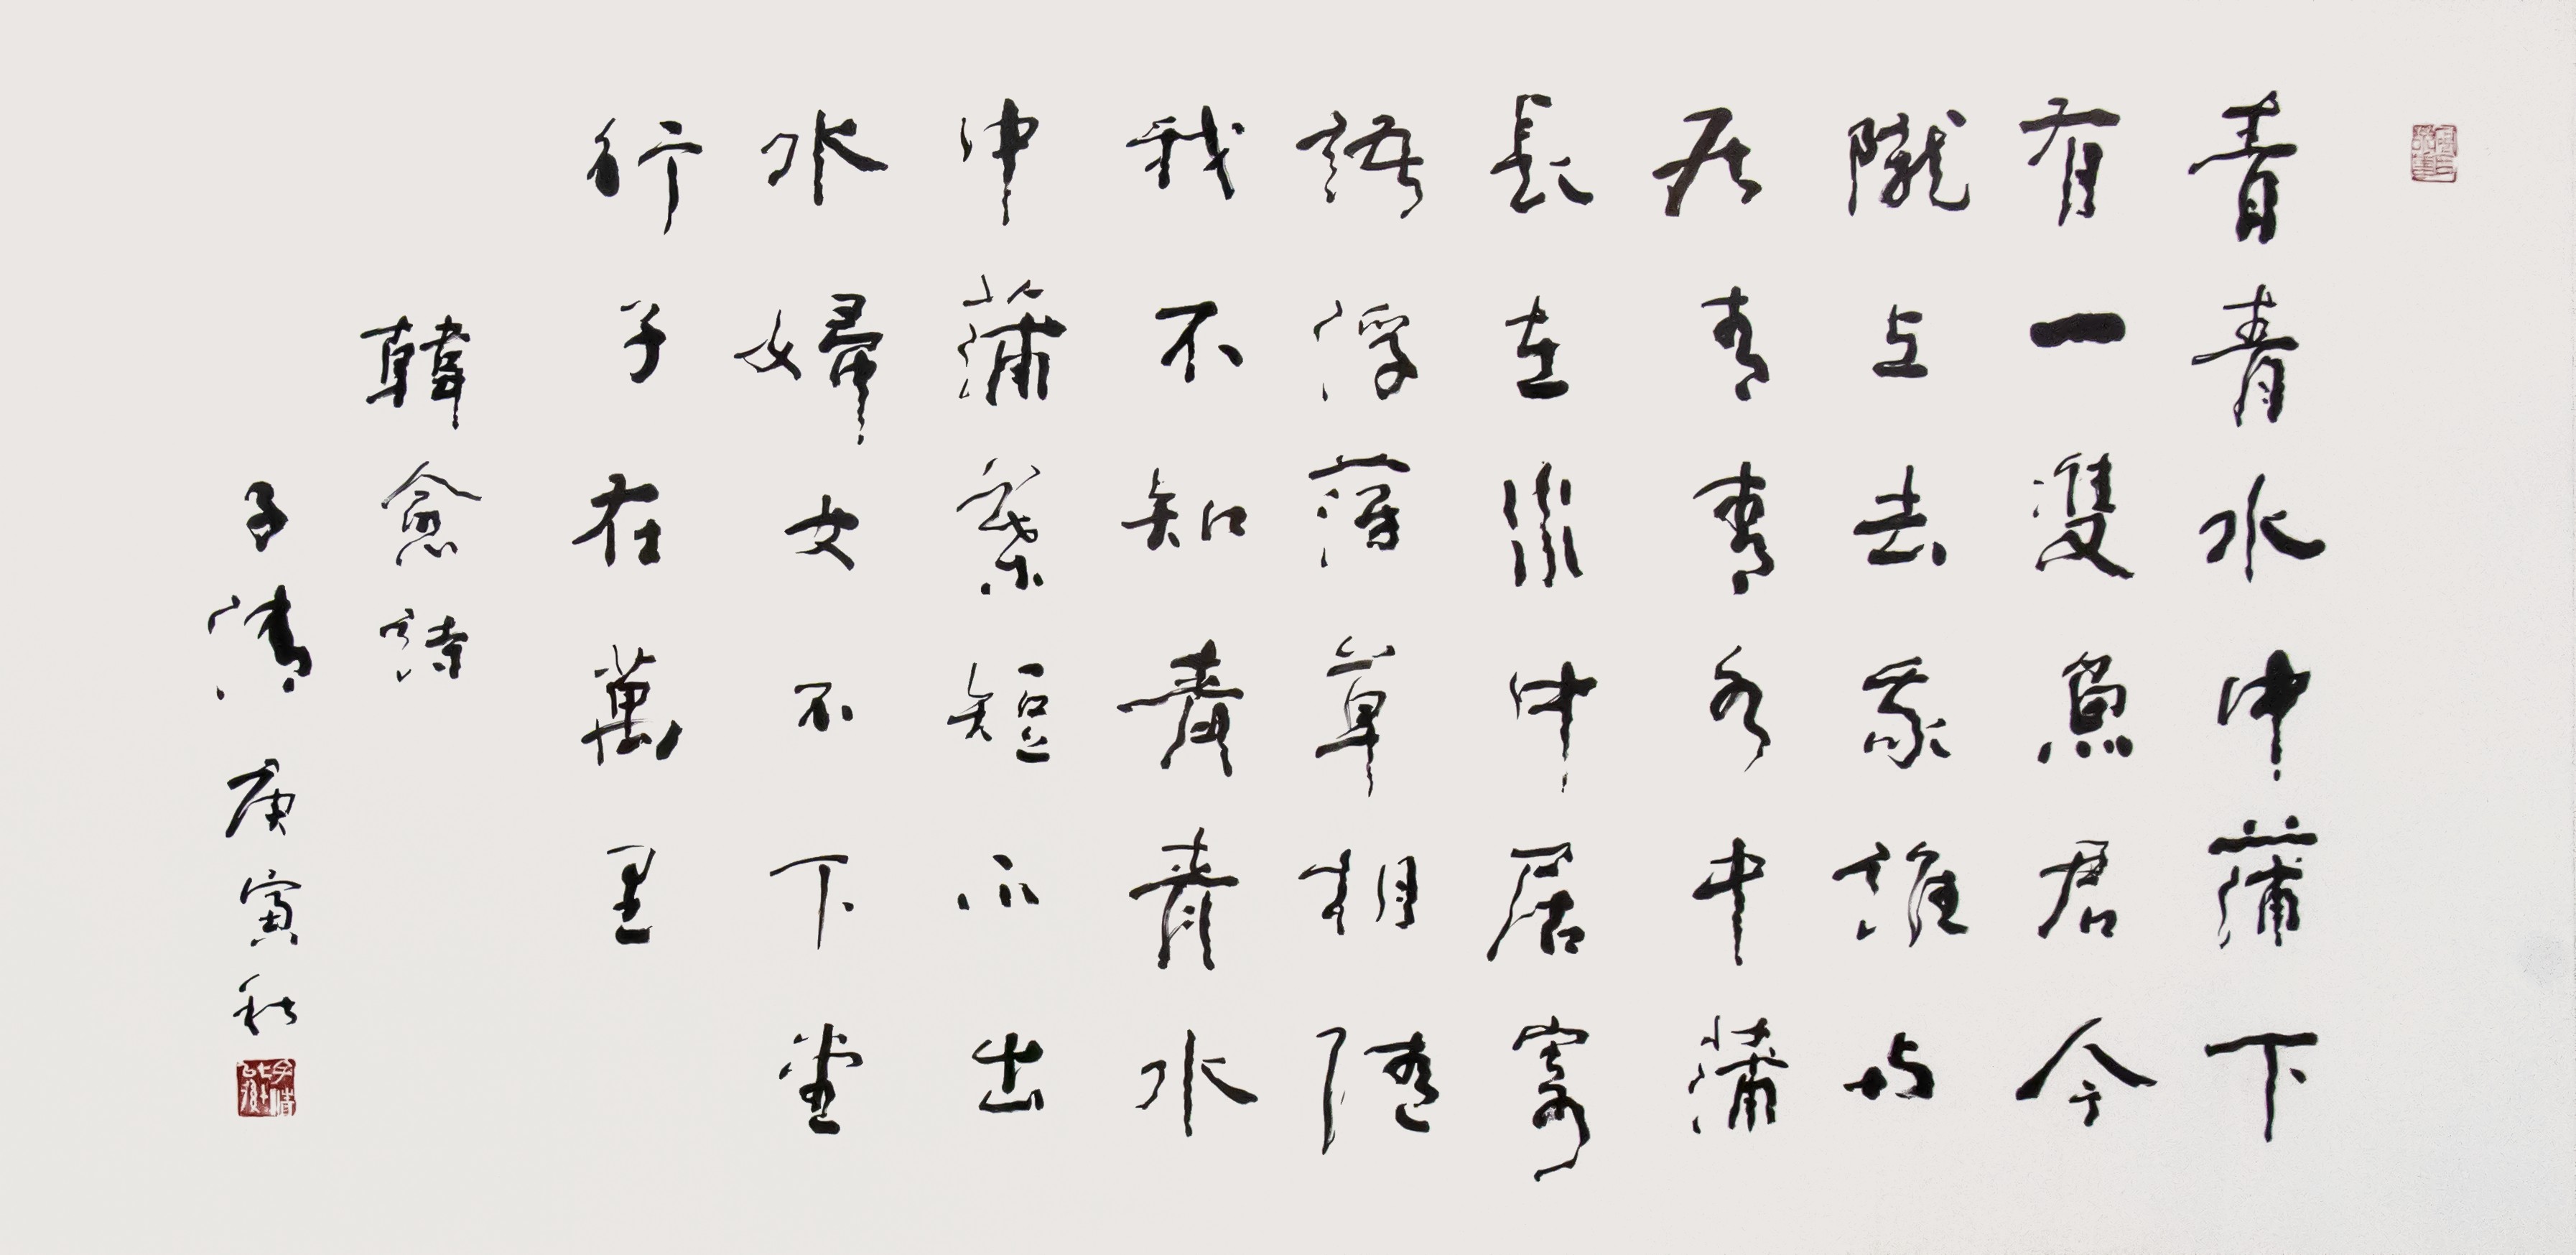 青青水中蒲下
有一雙魚君今
隴上去我誰與
居青青水中蒲
長在水中居寄
語浮萍草相隨
我不知青青水
中蒲葉短不出
水婦女不下堂
行子在萬里
韓愈詩
子清庚寅秋